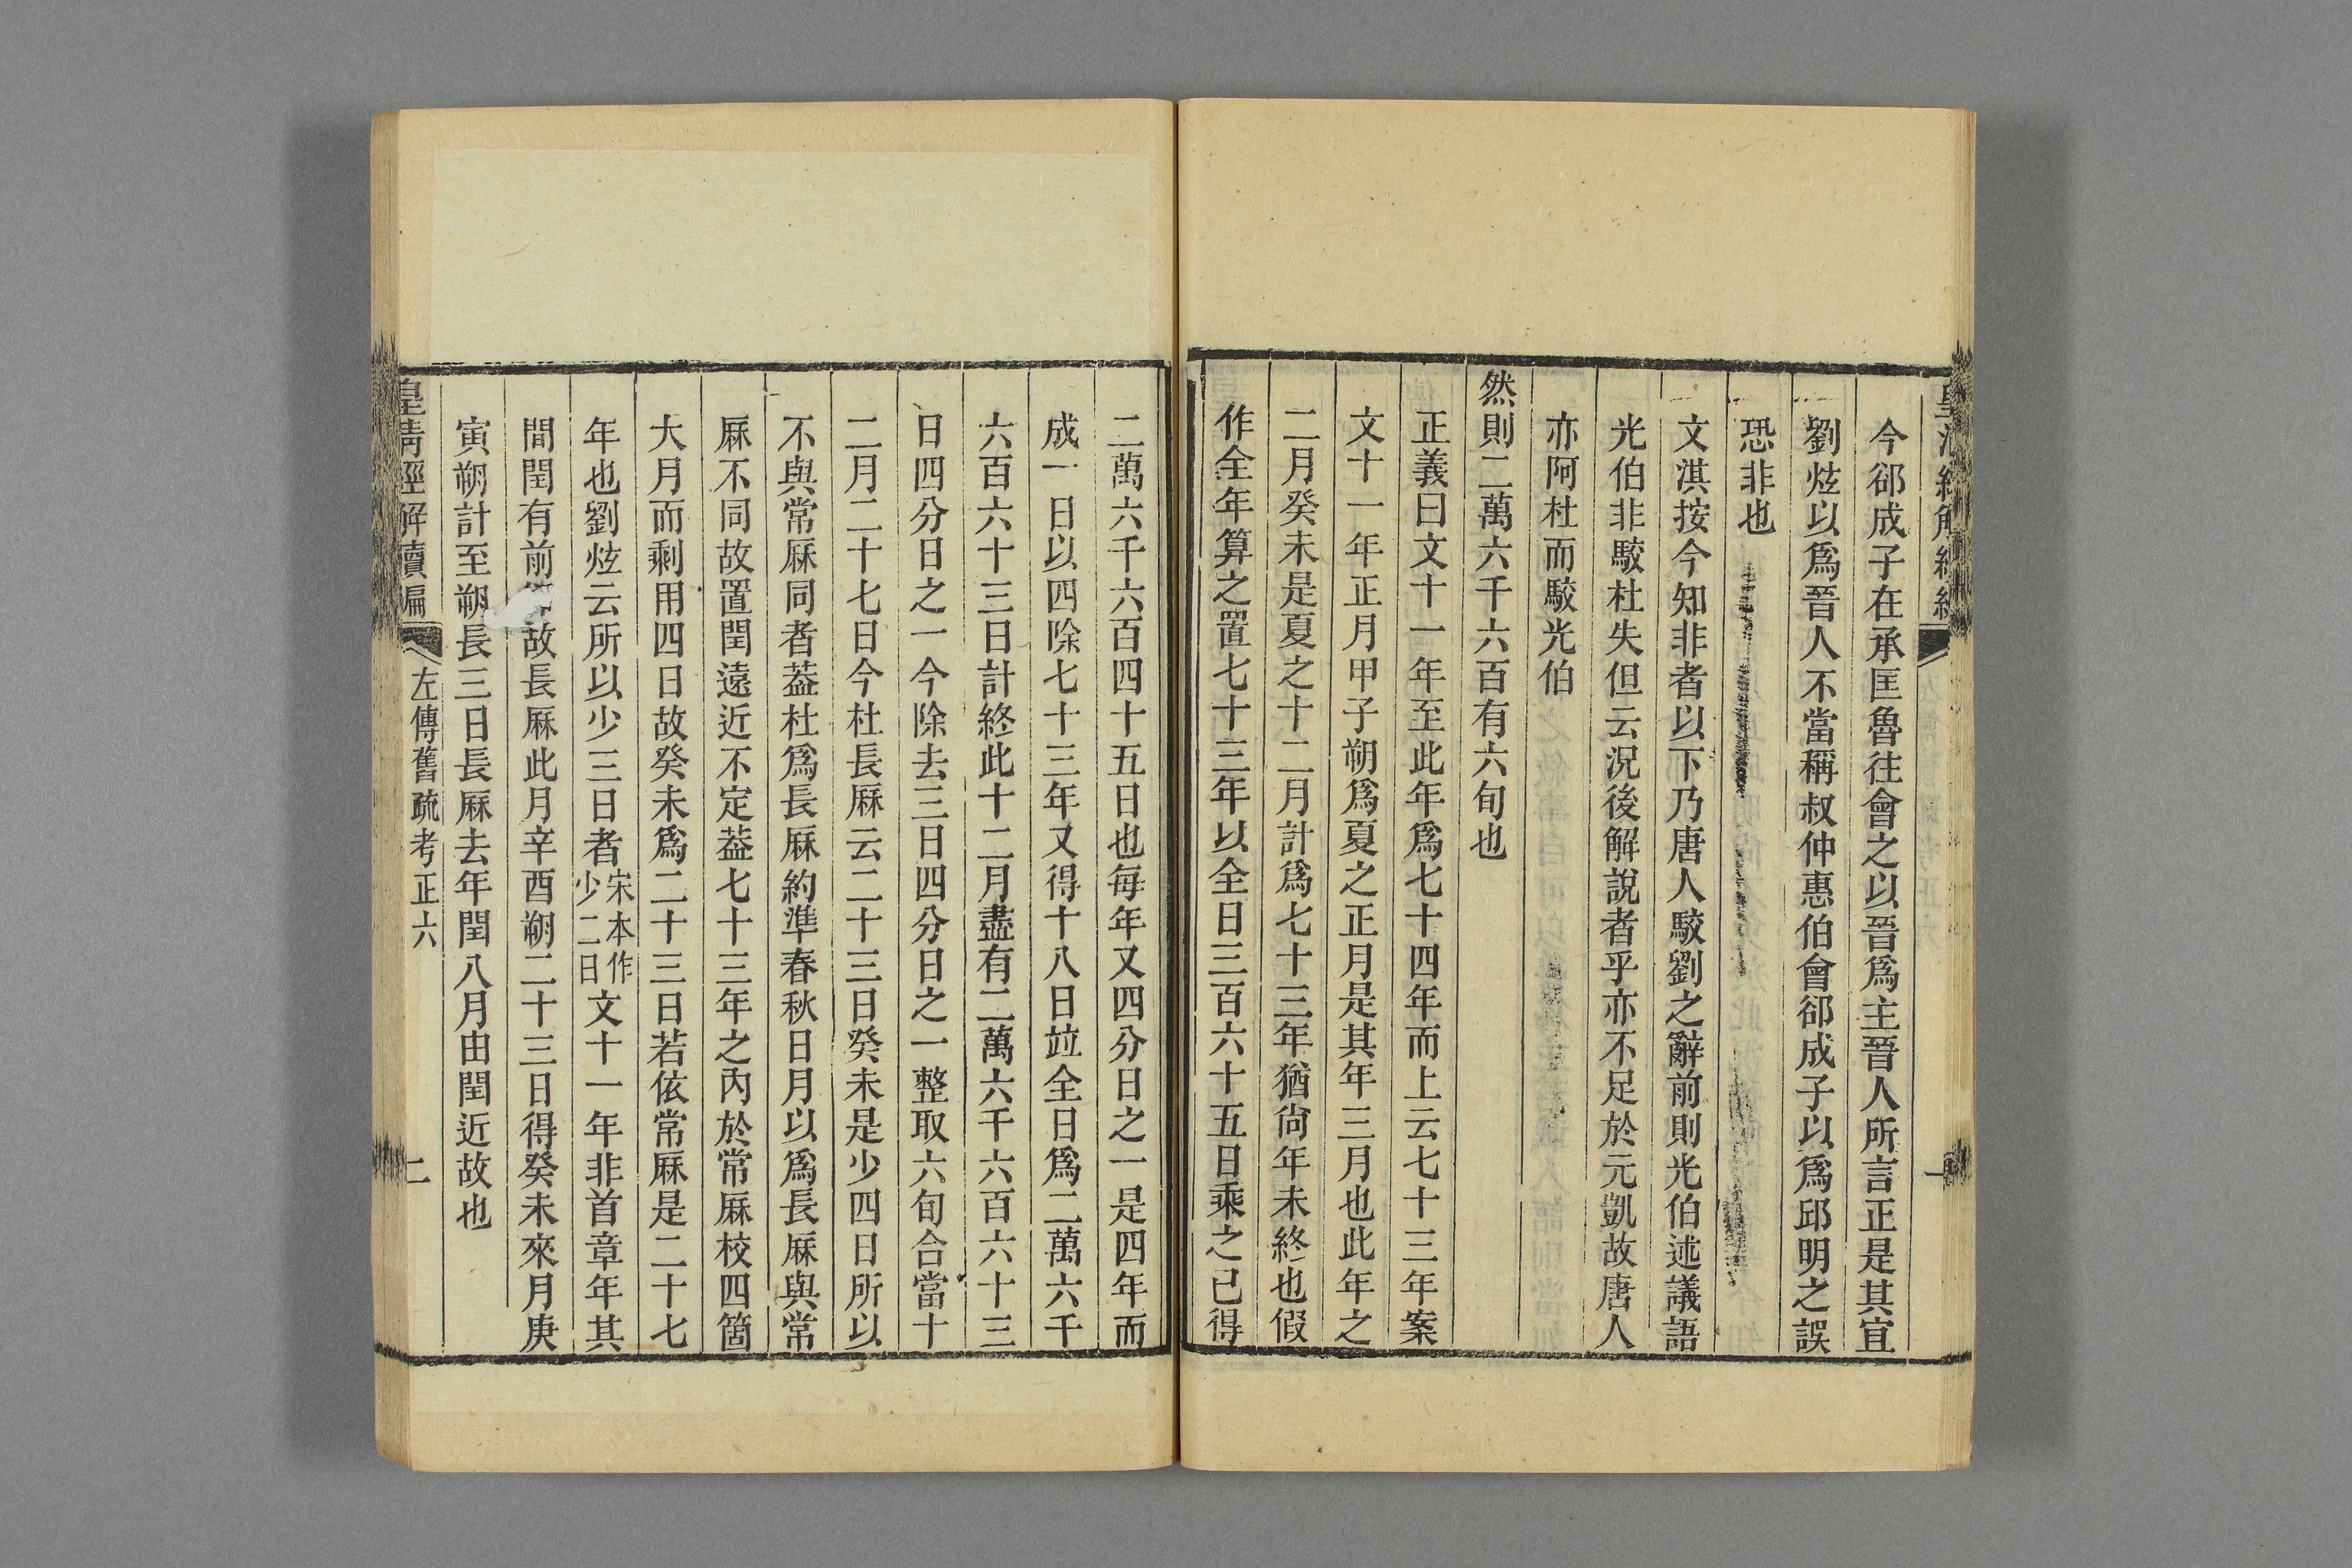 今郤成子在承匡魯往會之以晉爲主晉人所言正是其宜
劉炫以爲晉人不當稱叔仲惠伯會郤成子以爲邱明之誤
恐非也
文淇按今知非者以下乃唐人駮劉之辭前則光伯述議語
光伯非駮杜失但云況後解說者乎亦不足於元凱故唐人
亦阿杜而駮光伯
然則二萬六千六百有六旬也
正義曰文十一年至此年爲七十四年而上云七十三年案
文十一年正月甲子朔爲夏之正月是其年三月也此年之
二月癸未是夏之十二月計爲七十三年猶尚年未終也假
作全年算之置七十三年以全日三百六十五日乘之已得
二萬六千六百四十五日也每年又四分日之一是四年而
成一日以四除七十三年又得十八日竝全日爲二萬六千
六百六十三日計終此十二月盡有二萬六千六百六十三
日四分日之一今除去三日四分日之一整取六旬合當十
二月二十七日今杜長厤云二十三日癸未是少四日所以
不與常厤同者葢杜爲長厤約準春秋日月以爲長厤與常
厤不同故置閏遠近不定葢七十三年之內於常厤校四箇
大月而剩用四日故癸未爲二十三日若依常厤是二十七
年也劉炫云所以少三日者宋本作少二日文十一年非首章年其
間閏有前故長厤此月辛酉朔二十三日得癸未來月庚
寅朔計至朔長三日長厤去年閏八月由閏近故也
皇清經解續編 左傳舊疏考正六 二